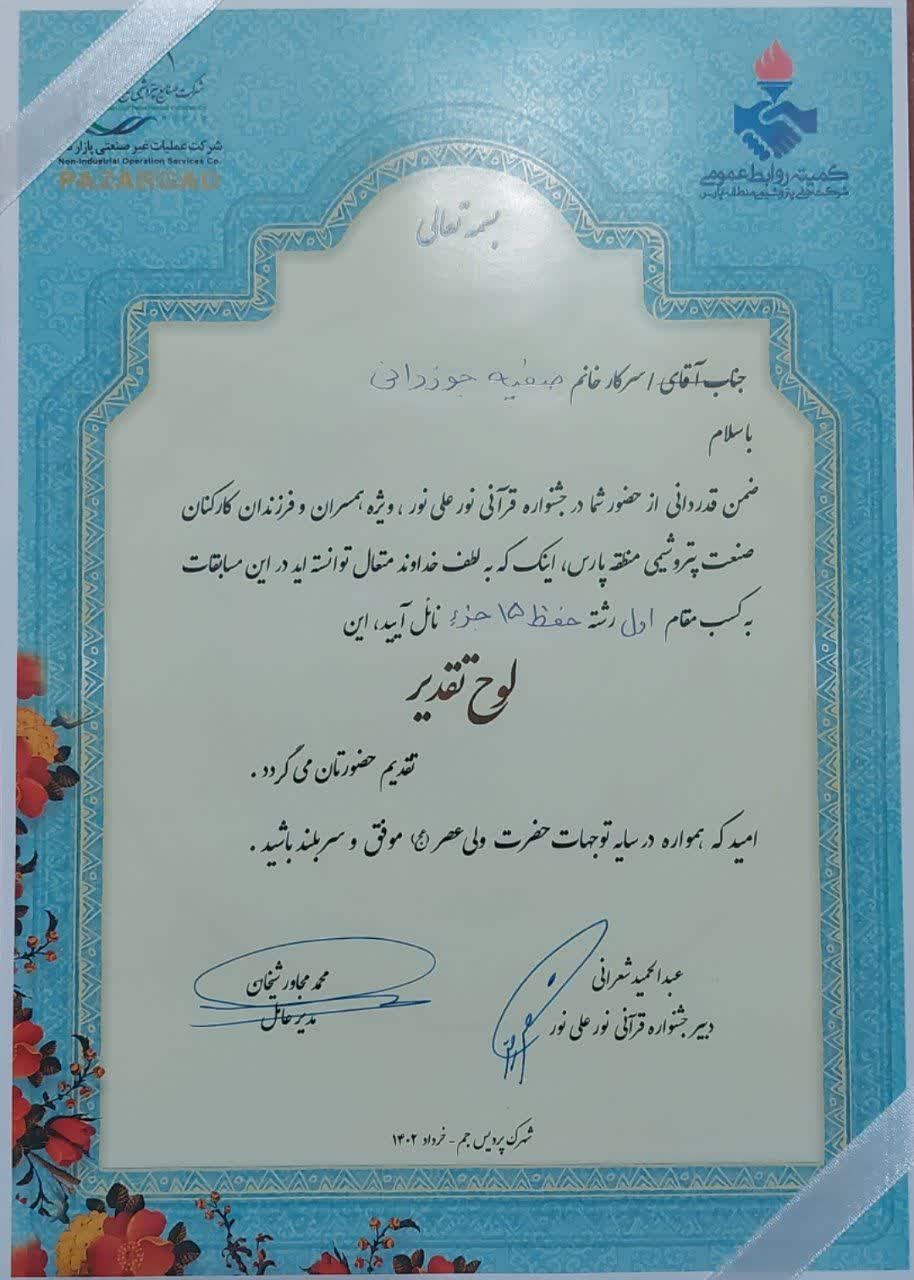 شرکت عملیات غیر صنعتی پازارگاد
Non-Industrial Operation Services Co.
PAZARGAD
کمیته روابط عمومی
شرکت های پتروشیمی منطقه پارس
بسمه تعالی
جناب آقای / سرکار خانم صفیه جوزدانی
با سلام
ضمن قدردانی از حضور شما در جشنواره قرآنی نور علی نور ، ویژه همسران و فرزندان کارکنان
صنعت پتروشیمی منطقه پارس، اینک که به لطف خداوند متعال توانسته اید در این مسابقات
به کسب مقام اول رشته حفظ ۱۵ جزء نائل آیید، این
لوح تقدیر
تقدیم حضورتان می گردد .
امید که همواره در سایه توجهات حضرت ولی عصر (عج) موفق و سربلند باشید .
عبدالحمید شعرانی
دبیر جشنواره قرآنی نور علی نور
محمد مجاور شیخان
مدیر عامل
شهرک پردیس جم - خرداد ۱۴۰۲